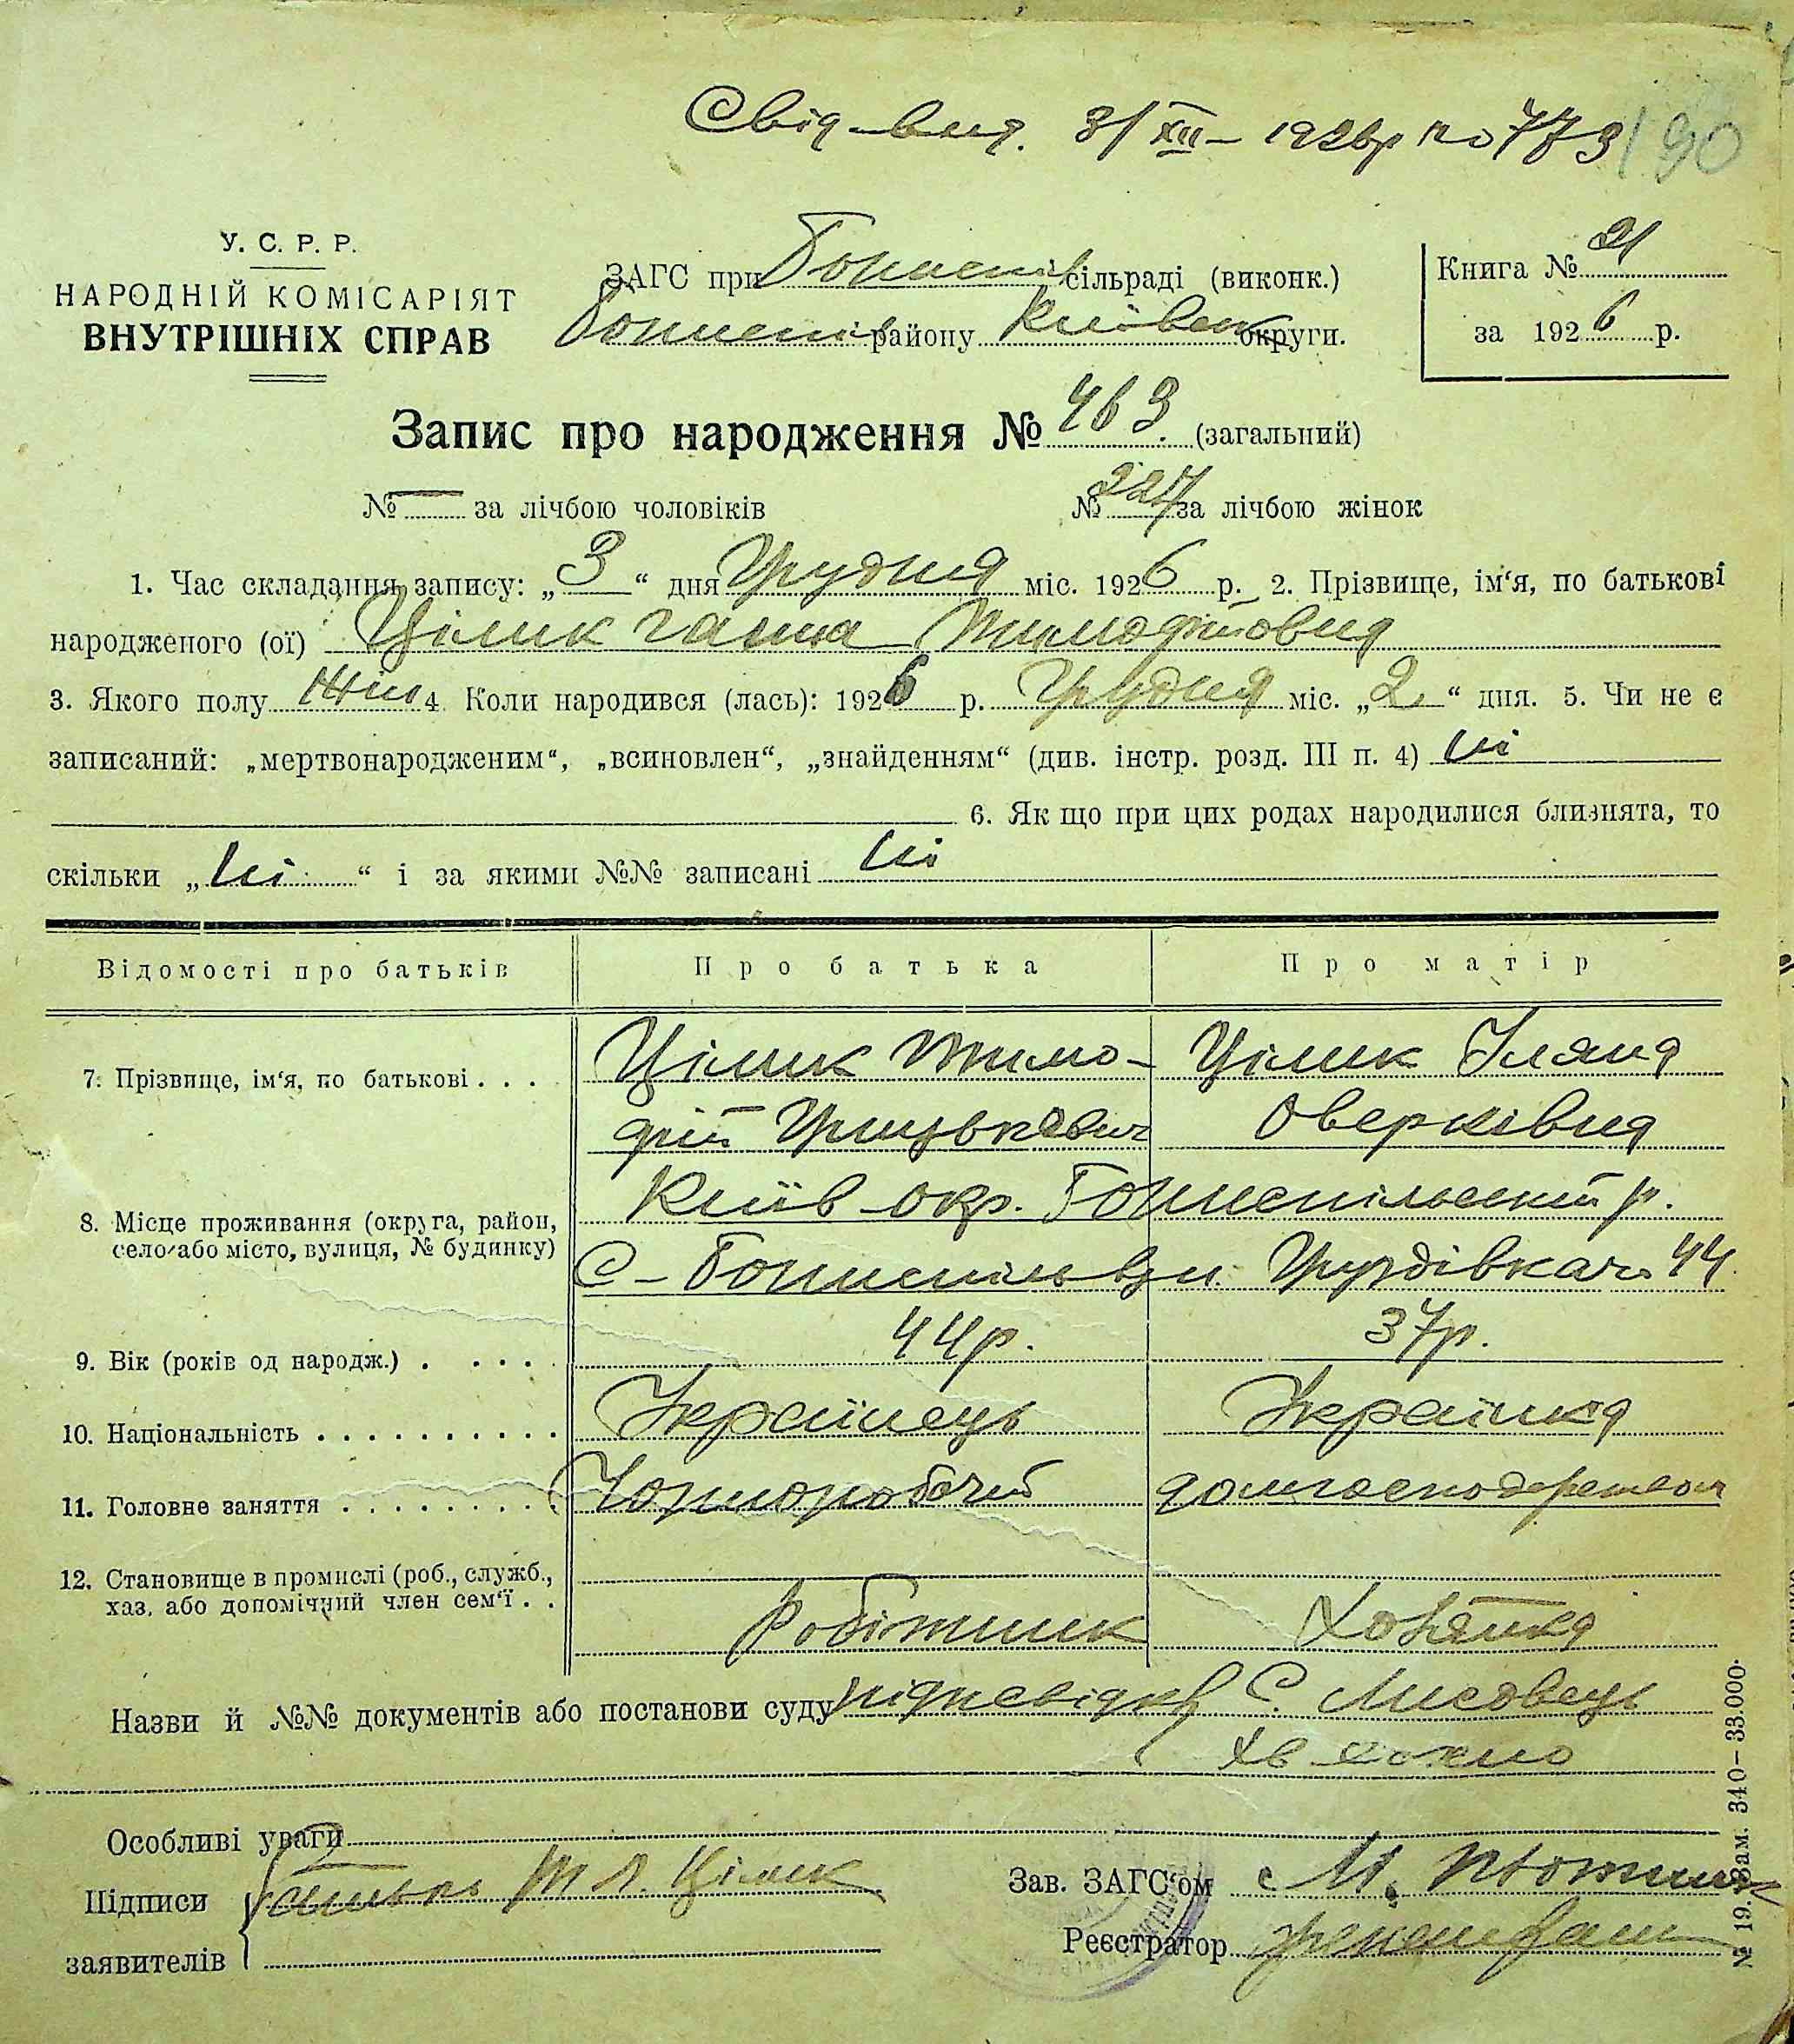 Свід-вид. 3/XII – 1926р по 773
190
У. С. Р. Р.
НАРОДНІЙ КОМІСАРІЯТ
ВНУТРІШНІХ СПРАВ
ЗАГС при Бориспіл сільраді (виконк.)
Бориспіл району Київськ округи.
Книга № 21
за 1926 р.
Запис про народження № 463. (загальний)
№ — за лічбою чоловіків № 227 за лічбою жінок
1. Час складання запису: „3“ дня Грудня міс. 1926 р. 2. Прізвище, ім‘я, по батькові
народженого (ої) Цілик Ганна Тимофіївна
3. Якого полу жіно 4. Коли народився (лась): 1926 р. Грудня міс. „2“ дня. 5. Чи не є
записаний: „мертвонародженим“, „всиновлен“, „знайденням“ (див. інстр. розд. III п. 4) ні
6. Як що при цих родах народилися близнята, то
скільки „ні“ і за якими №№ записані ні
Відомості про батьків Про батька Про матір
7. Прізвище, ім‘я, по батькові . . . Цілик Тимо- Цілик Уляна
фій Грицькович Оверківна
8. Місце проживання (округа, район, Київ окр. Бориспільський р.
село або місто, вулиця, № будинку) С – Бориспіль вул. Гурдівка ч. 44
9. Вік (років од народж.) . . . . . 44р. 37р.
10. Національність . . . . . . . . . . Українець Українка
11. Головне заняття . . . . . . . . Чорноробочий домгосподарством
12. Становище в промислі (роб., служб.,
хаз. або допомічний член сем‘ї . . Робітник Хозяйка
Назви й №№ документів або постанови суду С. Лисовець
Особливі уваги
Підписи Цілик
заявителів
Зав. ЗАГС‘ом
Реєстратор
№ 19. Зам. 340–33.000.